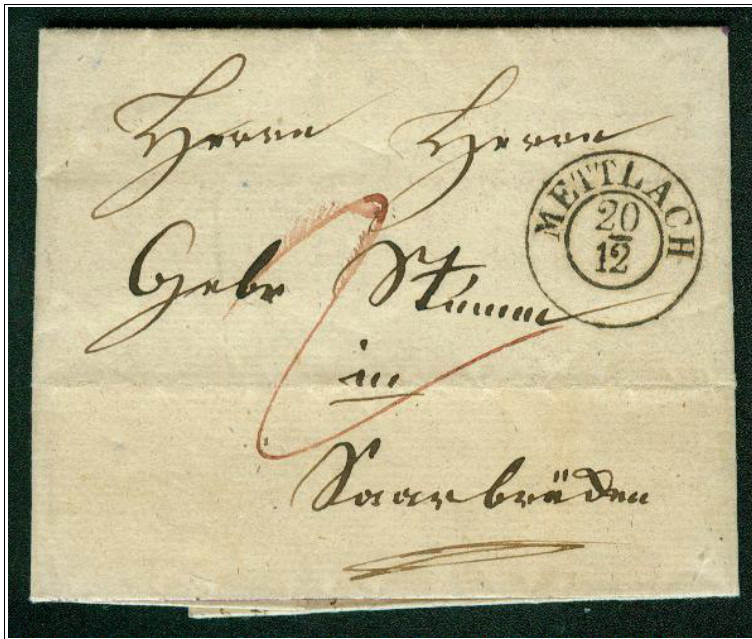 Herrn Herrn
METTLACH
20
12
Gebr Stumm
in
Saarbrücken